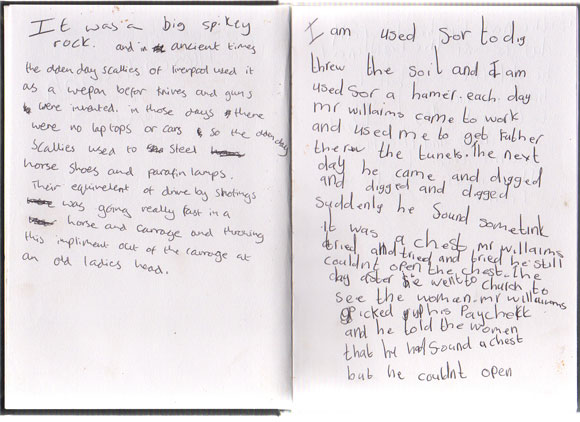 It was a big spikey
rock. and in ancient times
the olden day scallies of liverpool used it
as a wepon befor knives and guns
were invented. in those days there
were no laptops or cars so the olden day
scallies used to steel
horse shoes and parafin lamps.
Their equivelent of drive by shotings
was going really fast in a
horse and carrage and throwing
this impliment out of the carrage at
an old ladies head.
I am used sor to dig
threw the soil and I am
used sor a hamer. each day
mr willaims came to work
and used me to get futher
threw the tunels. The next
day he came and digged
and digged and digged
suddenly he sound sometink
it was a chest mr willaims
tried and tried and tried he still
couldnt open the chest. the
day aster he went to church to
see the woman. mr willaiams
picked up his paycheck
and he told the women
that he had sound a chest
but he couldnt open